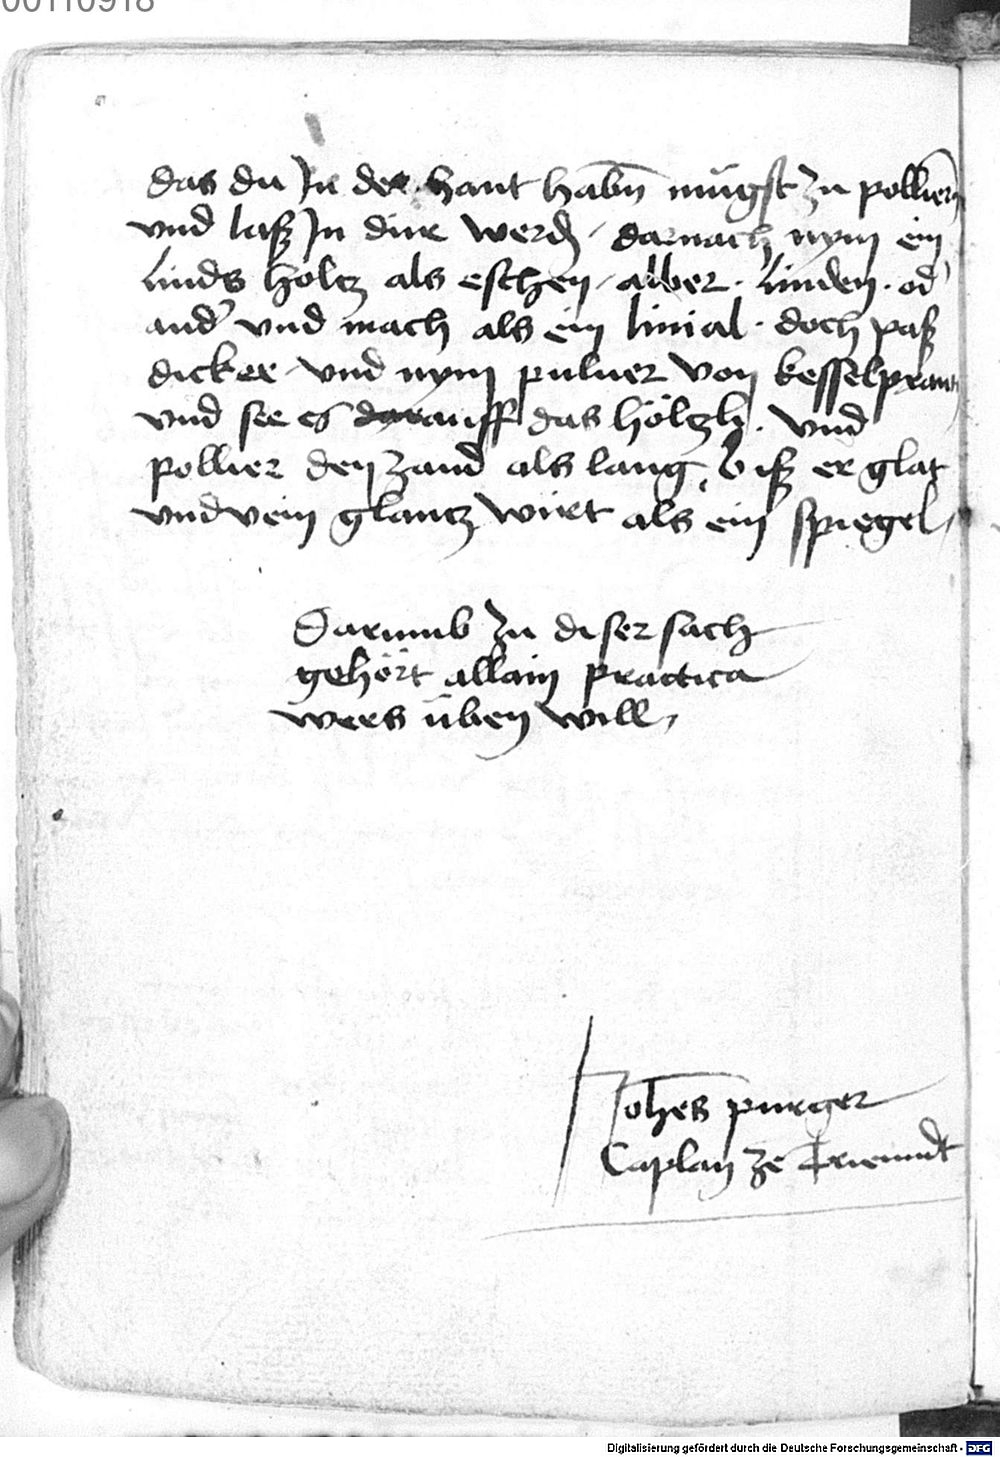 00110918
das du Jn der hant habn̄ mügst zu polliern̄
und laß Jn dürr werdn̄ / darnach nym ein
linds holtz als eschen / alber · linden · od'
and' und mach als ein linial · doch paß
dicker / und nym puluer von kesselpraun
und see es darauff das höltzl / und
pollier den zand als lang biß er glat
und vein glantz würt als ein spiegel /
Darumb zu diser sach
gehört allain practica
wers üben will /
Joh̄es purger
Caplan ze
Digitalisierung gefördert durch die Deutsche Forschungsgemeinschaft - DFG